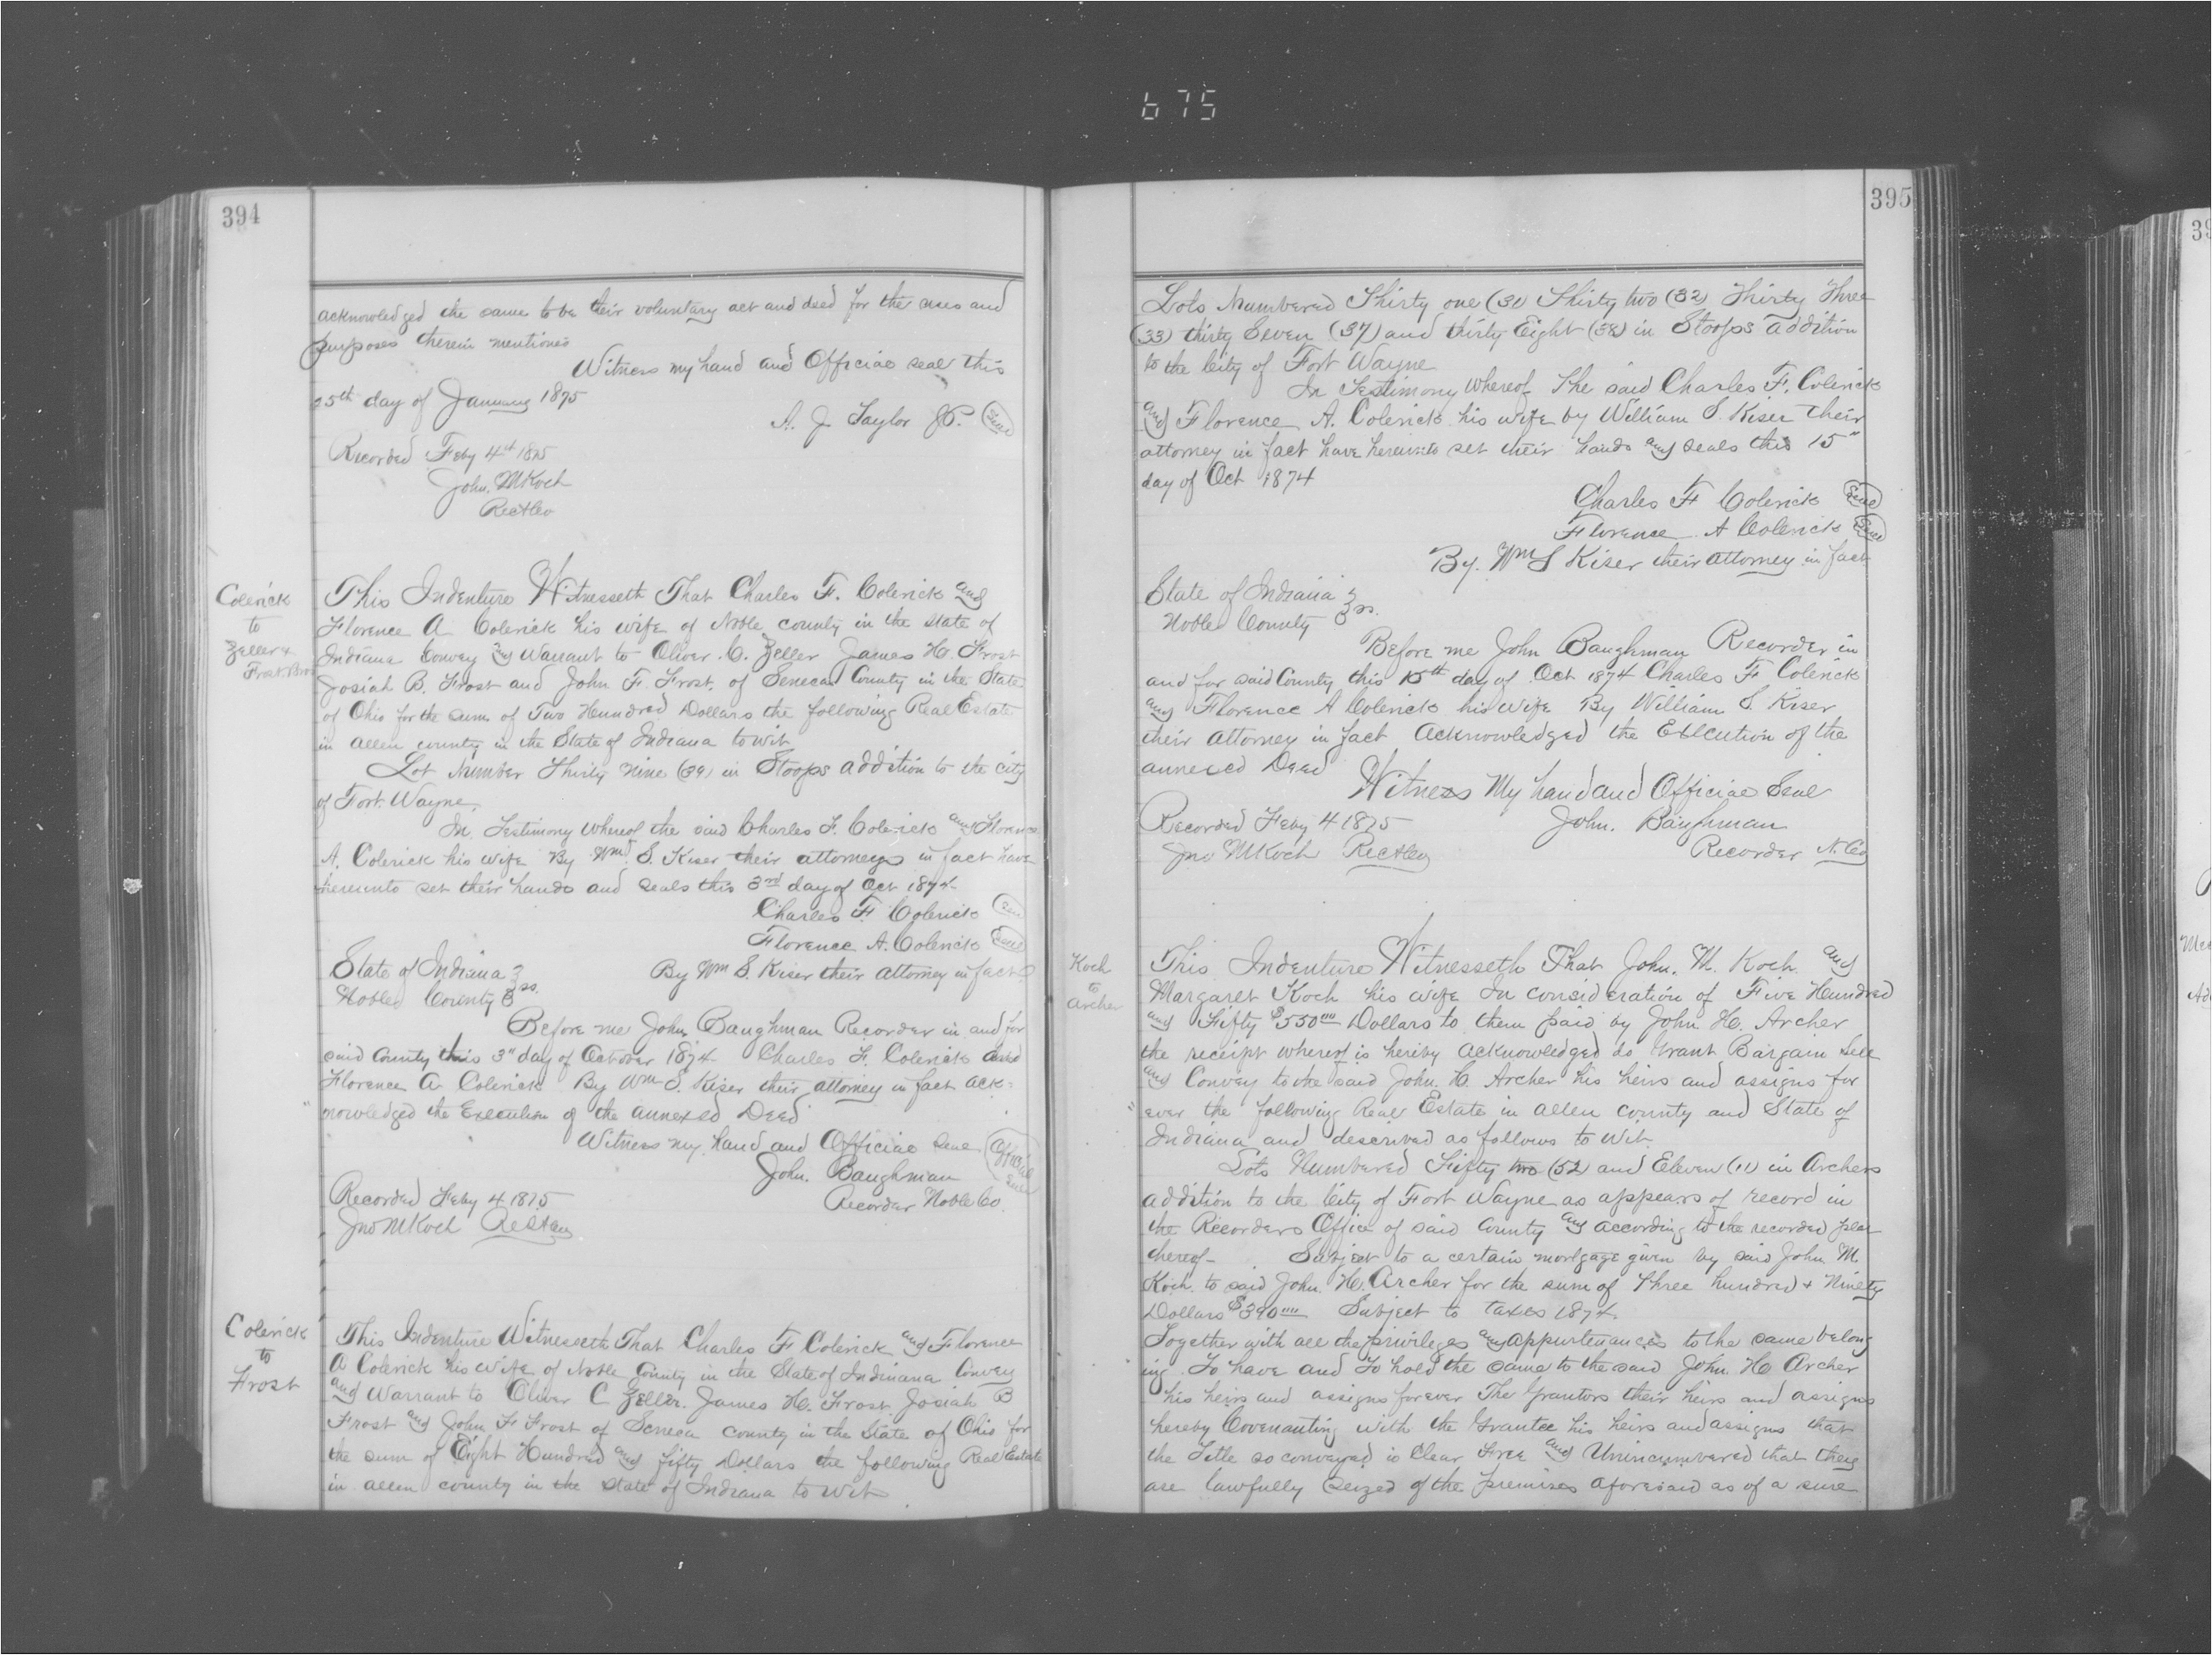 675
394
acknowledged the same to be their voluntary act and deed for the uses and
purposes therein mentioned
Witness my hand and Official seal this
25th day of January 1875
A. J. Taylor J.P. (Seal)
Recorded Feby 4th 1875
John. M Koch
Rec
Colerick
to
Zeller &
Frost Bros
This Indenture Witnesseth That Charles F. Colerick and
Florence A Colerick his wife of Noble county in the State of
Indiana Convey and Warrant to Oliver. C. Zeller James H. Frost
Josiah B. Frost and John F. Frost. of Seneca County in the State
of Ohio for the sum of Two Hundred Dollars the following Real Estate
in allen county in the State of Indiana to wit
Lot Number Thirty Nine (39) in Stoops addition to the city
of Fort. Wayne.
In Testimony Whereof the said Charles F. Colerick and Florence
A. Colerick his wife By Wm S. Kiser their attorneys in fact have
hereunto set their hands and seals this 3rd day of Oct 1874
Charles F. Colerick (Seal)
Florence A. Colerick (Seal)
By Wm S. Kiser their attorney in fact
State of Indiana }
Noble County } ss.
Before me John Baughman Recorder in and for
said County this 3" day of October 1874 Charles F. Colerick and
Florence A Colerick By Wm S. Kiser their attorney in fact ack=
nowledged the Execution of the annexed Deed
Witness my hand and Official Seal (Official Seal)
John. Baughman
Recorder Noble Co.
Recorded Feby 4 1875
Jno M Koch
Colerick
to
Frost
This Indenture Witnesseth That Charles F Colerick and Florence
A Colerick his wife of Noble County in the State of Indiana Convey
and Warrant to Oliver C Zeller. James H. Frost Josiah B
Frost and John F Frost of Seneca county in the State of Ohio for
the sum of Eight Hundred and fifty Dollars the following Real Estate
in allen county in the State of Indiana to Wit
395
Lots Numbered Thirty one (31) Thirty two (32) Thirty Three
(33) thirty Seven (37) and thirty Eight (38) in Stoops addition
to the City of Fort Wayne
In Testimony Whereof The said Charles F. Colerick
and Florence A. Colerick his wife by William S. Kiser their
attorney in fact have hereunto set their hands and seals this 15"
day of Oct 1874
Charles F Colerick (Seal)
Florence A Colerick (Seal)
By. Wm S Kiser their attorney in fact
State of Indiana }
Noble County } ss.
Before me John Baughman Recorder in
and for said County this 15th day of Oct 1874 Charles F Colerick
and Florence A Colerick his wife By William S. Kiser
their attorney in fact acknowledged the Execution of the
annexed Deed
Witness My hand and Official Seal
Recorded Feby 4 1875
John. Baughman
Jno M Koch
Recorder N. Co
Koch
to
Archer
This Indenture Witnesseth That John. M. Koch and
Margaret Koch his wife In consideration of Five Hundred
and Fifty $550 00 Dollars to them paid by John H. Archer
the receipt whereof is hereby acknowledged do Grant Bargain Sell
and Convey to the said John. H. Archer his heirs and assigns for
ever the following Real Estate in allen county and State of
Indiana and described as follows to wit.
Lots Numbered Fifty two (52) and Eleven (11) in Archers
addition to the City of Fort Wayne as appears of record in
the Recorders Office of said County and according to the recorded plat
thereof- Subject to a certain mortgage given by said John M.
Koch to said John. H. Archer for the sum of Three hundred & Ninety
Dollars $390 00 Subject to taxes 1874
Together with all the privileges and appurtenances to the same belong
ing. To have and To hold the same to the said John. H Archer
his heirs and assigns forever The Grantors their heirs and assigns
hereby Covenanting with the Grantee his heirs and assigns that
the Title so conveyed is Clear Free and Unincumbered that they
are lawfully Seized of the premises aforesaid as of a sure